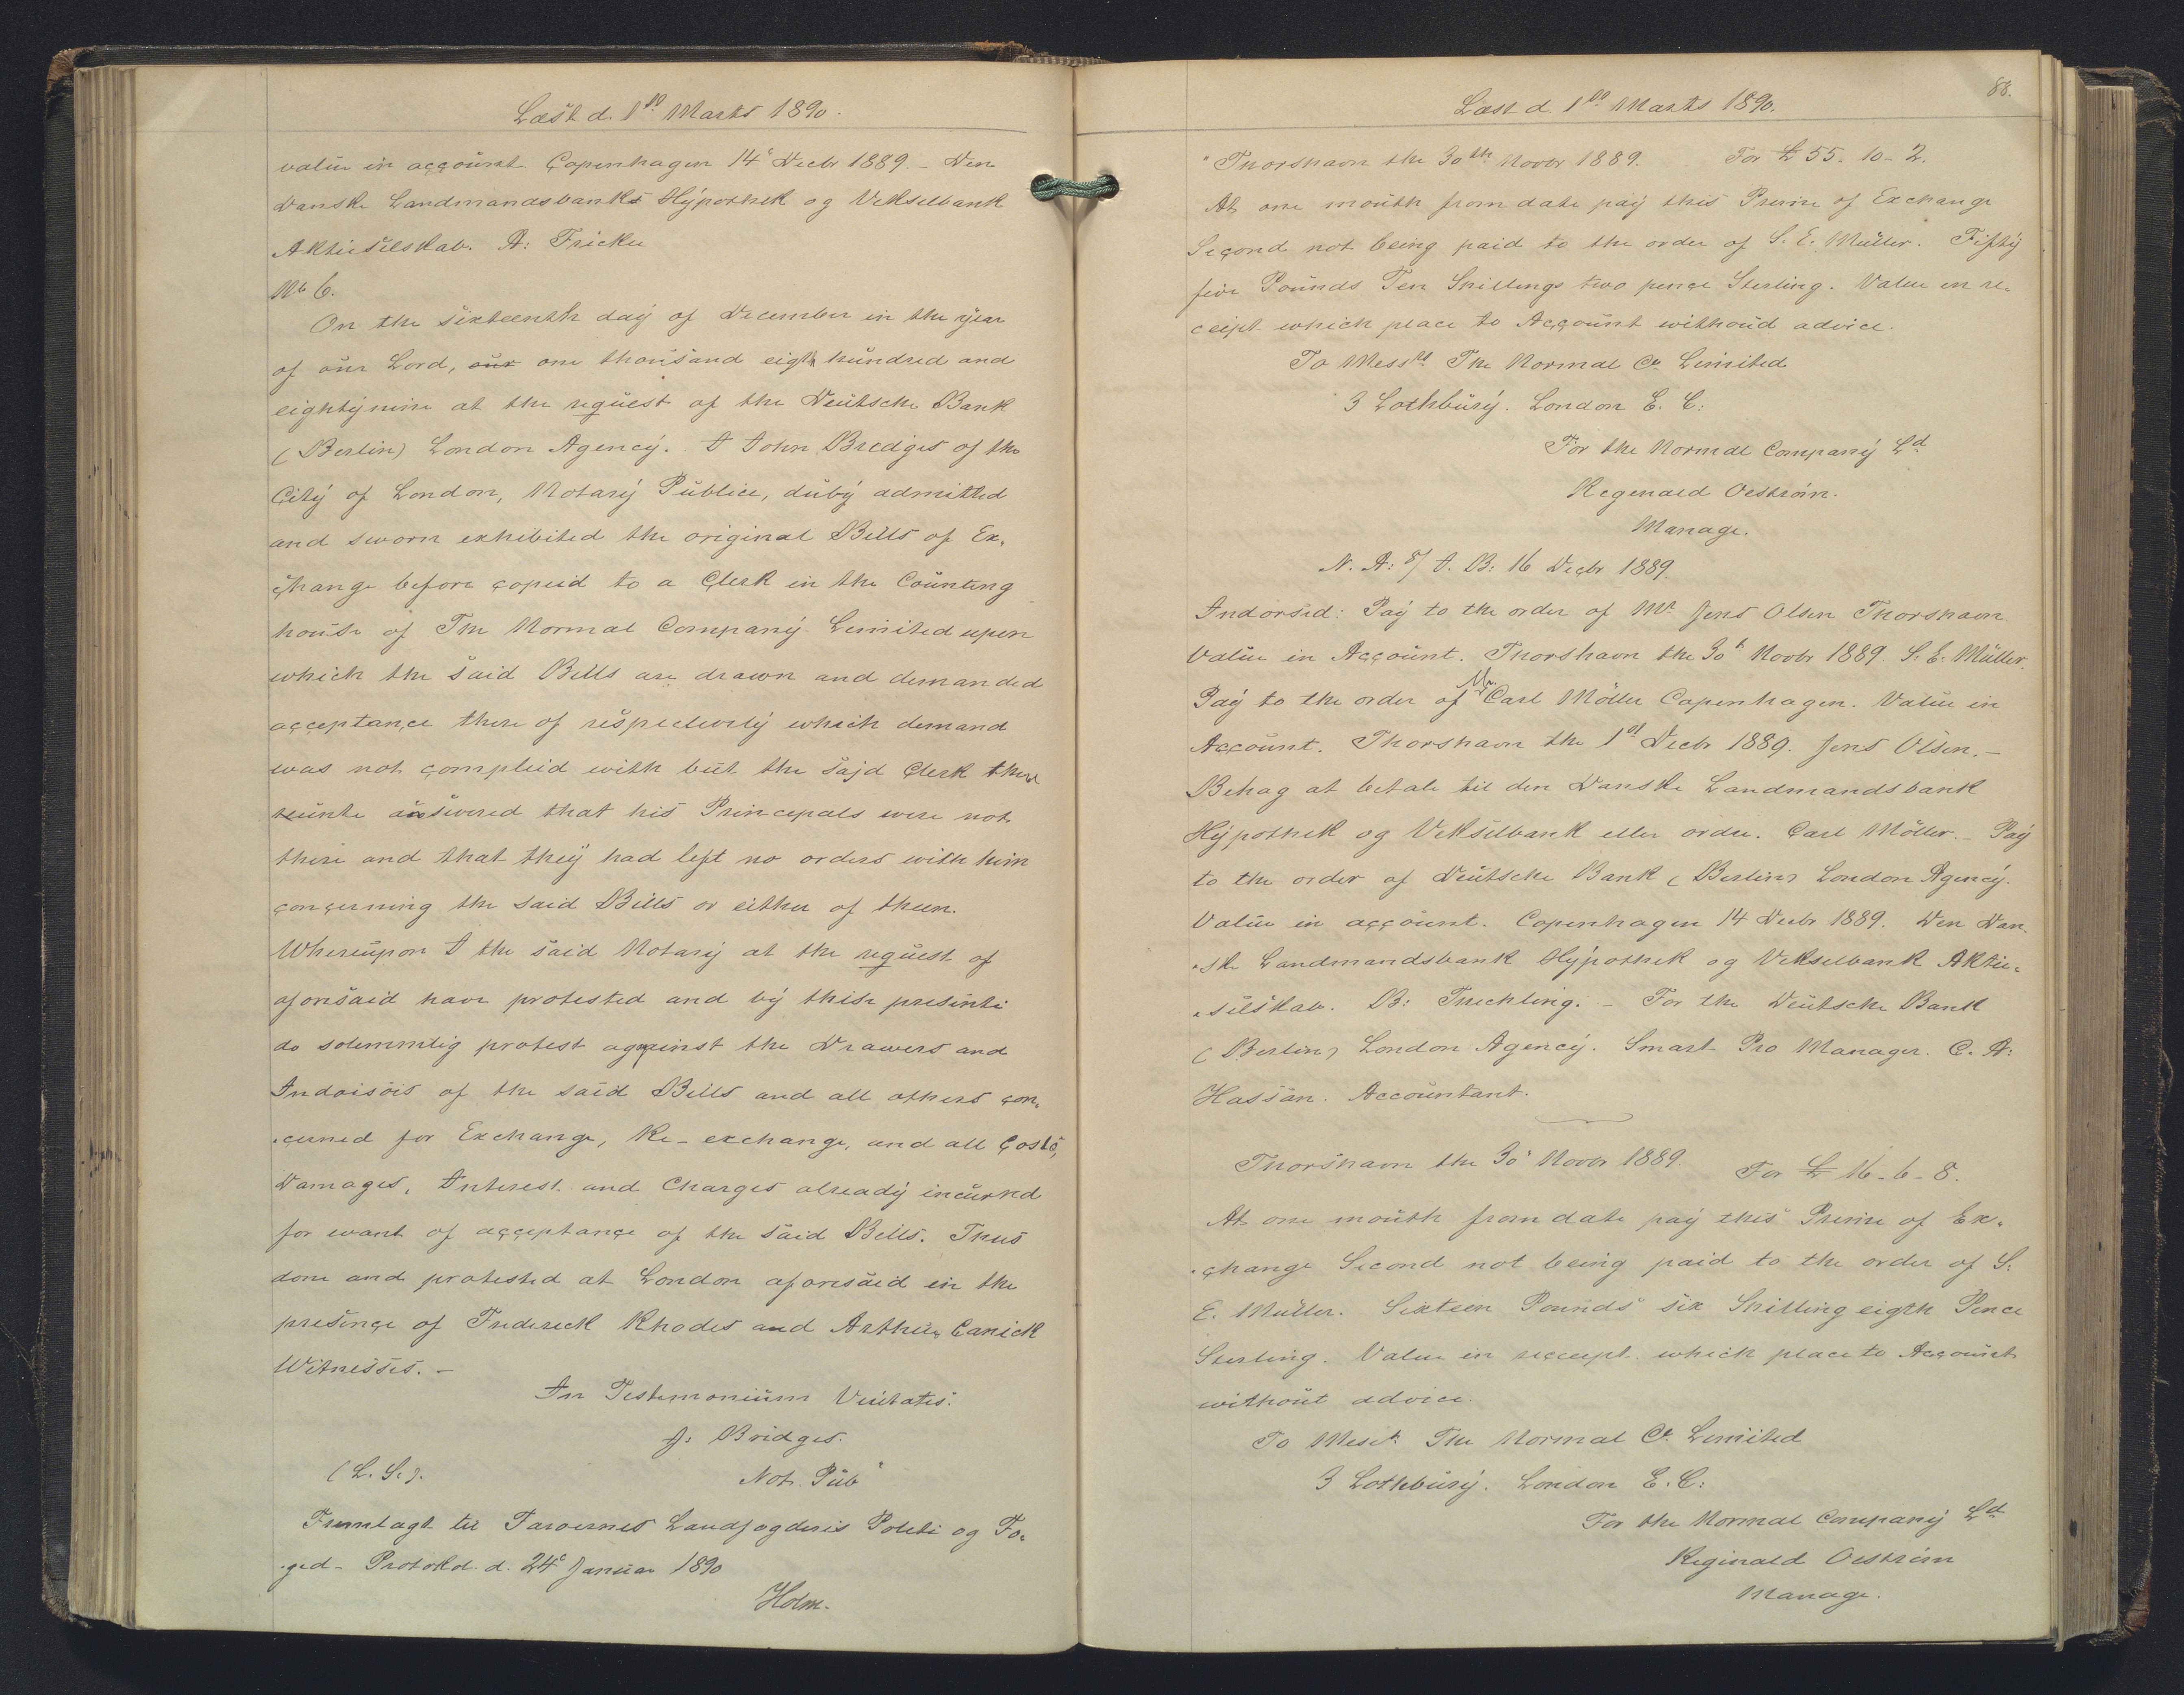 Læst d. 1ste Marts 1890.
value in account Copenhagen 14' Decbr 1889. – Den
Danske Landmandsbanks Hypothek og Vekselbank
Aktieselskab. A: Fricke
No 6.
On the sixteenth day of December in the year
of our Lord, our one thousand eigth hundred and
eightynine at the request of the Deutsche Bank
(Berlin) London Agency. I John Bredges of the
City of London, Notary Publice, duby admitted
and sworn exhibited the original Bills of Ex-
change before copied to a Clerk in the Counting
house of The Normal Company Limited upon
which the said Bills are drawn and demanded
acceptance there of respectively which demand
was not complied with but the sajd Clerk there
reunte answered that his Principals were not
there and that they had left no orders with him
concerning the said Bills or either of them.
Whereupon I the said Notary at the request of
aforesaid have protested and by these presente
do solemmlig protest against the Drawers and
Indoisois of the said Bills and all others con-
cerned for Exchange, Re-exchange, and all Costs,
Damages, Interest and Charges already incurred
for want of acceptance of the said Bills. Thus
done and protested at London aforesaid in the
presence of Frederick Rhodes and Arthur Canick
Witnesses. –
In Testemonium Veritatis.
J: Bridges.
(L. S.). Not. Pub
Fremlagt til Færøernes Landfogderis Politi og Fo-
ged- Protokol d. 24' Januar 1890
Holm.
88.
Læst d. 1ste Marts 1890.
"Thorshavn the 30th Novbr 1889. For £ 55. 10- 2.
At one mouth from date pay this Prime of Exchange
Second not being paid to the order of S. E. Müller. Fifty
five Pounds Ten Shillings two pence Sterling. Value en re-
ceipt which place to Account withoud advice.
To Messrs The Normal Co Limited
3 Lothbury. London E. C:
For the Normal Company Ld
Regenald Oeström.
Manage.
N. A: 8/ J. B: 16 Decbr 1889.
Indorsed: Pay to the order of Mr Jens Olsen Thorshavn
Value in Account. Thorshavn the 30th Novbr 1889. S. E. Müller.
Pay to the order of Mr. Carl Möller Copenhagen. Value in
Account. Thorshavn the 1st Decbr 1889. Jens Olsen. –
Behag at betale til den Danske Landmandsbank
Hypothek og Vekselbank eller order. Carl Möller. – Pay
to the order of Deutsche Bank (Berlin) London Agency.
Value in account. Copenhagen 14 Decbr 1889. Den Dan-
ske Landmandsbank Hypothek og Vekselbank Aktie-
selskab. B: – For the Deutsche Bank
(Berlin) London Agency. Smart Pro Manager. C. A:
Hassan. Accountant.
Thorshavn the 30' Novbr 1889. For £ 16-6-8.
At one mouth from date pay this Prime of Ex-
change Second not being paid to the order of S:
E. Müller. Sixteen Pounds six Shilling eigth Pence
Sterling. Value in recceipt which place to Account
without advice.
To Messrs The Normal Co Limited
3 Lothbury. London E. C:
For the Normal Company Ld
Reginald Oeström
Manage.